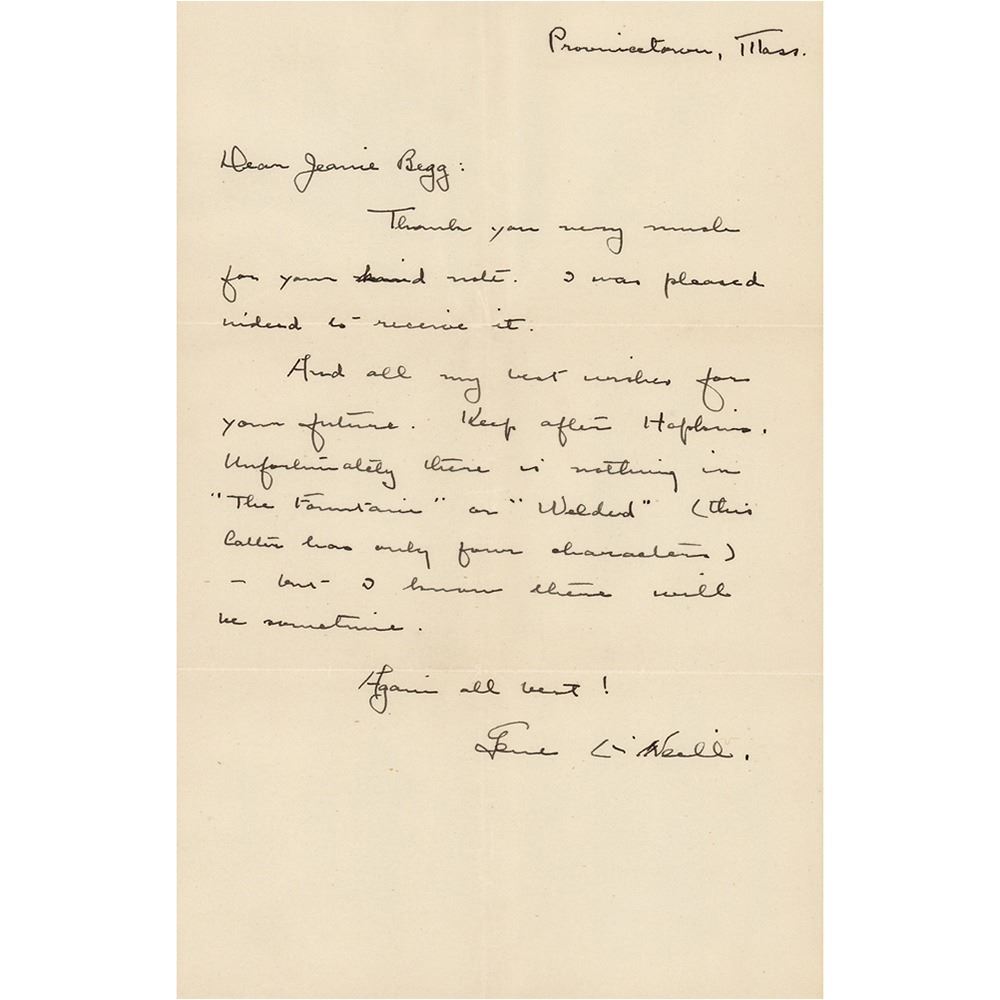 Provincetown, Mass.
Dear Jeanie Begg:
Thank you very much
for your kind note. I was pleased
indeed to receive it.
And all my best wishes for
your future. Keep after Hopkins.
Unfortunately there is nothing in
"The Fountain" or "Welded" (this
latter has only four characters)
- but I know there will
be sometime.
Again all best!
Gene O'Neill.